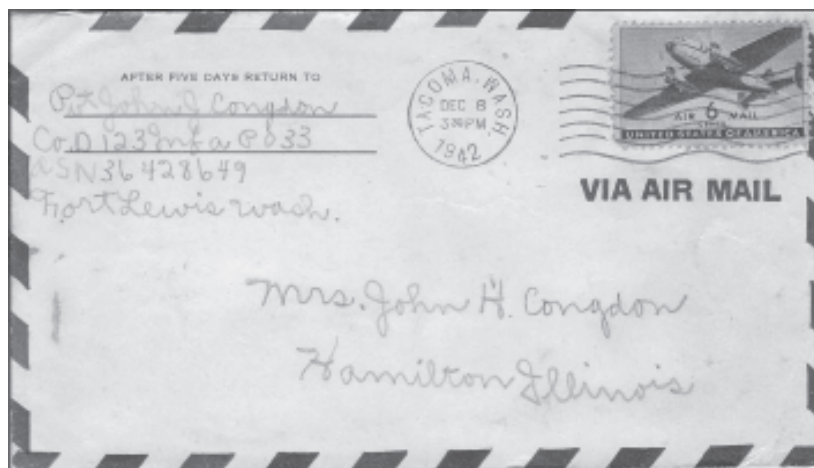 AFTER FIVE DAYS RETURN TO
Pvt John J Congdon
Co. D 123 Inf a P O 33
ASN 36 428649
Fort Lewis Wash.
TACOMA, WASH.
DEC 8
3 PM
1942
AIR 6 MAIL
CENTS
UNITED STATES OF AMERICA
VIA AIR MAIL
Mrs. John H. Congdon
Hamilton Illinois